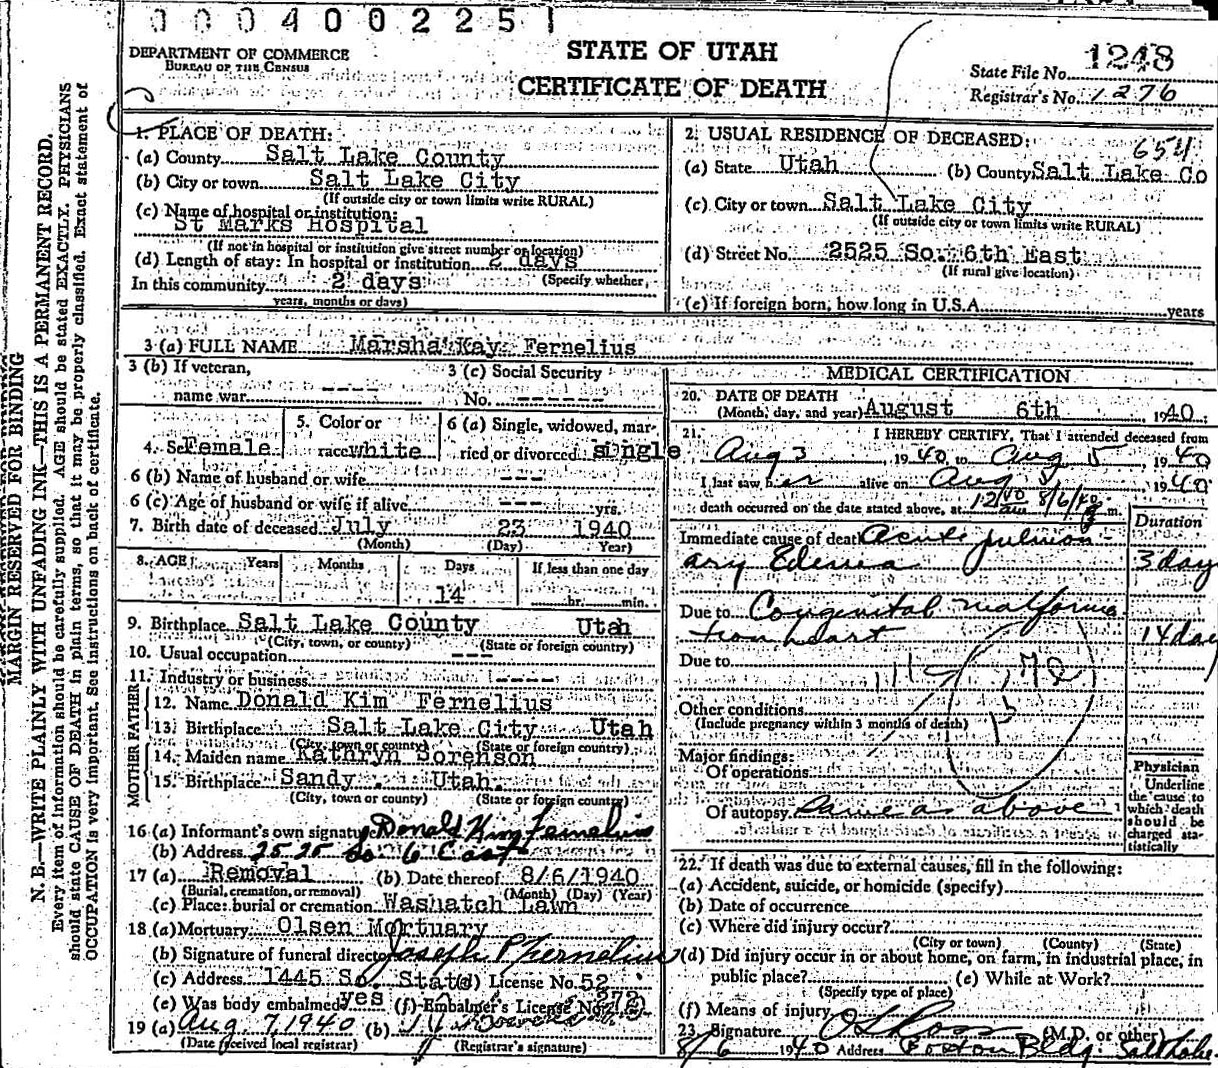 0004002251
DEPARTMENT OF COMMERCE
BUREAU OF THE CENSUS
STATE OF UTAH
CERTIFICATE OF DEATH
State File No. 1248
Registrar's No. 1276
MARGIN RESERVED FOR BINDING
N. B.—WRITE PLAINLY WITH UNFADING INK—THIS IS A PERMANENT RECORD.
Every item of information should be carefully supplied. AGE should be stated EXACTLY. PHYSICIANS
should state CAUSE OF DEATH in plain terms, so that it may be properly classified. Exact statement of
OCCUPATION is very important. See instructions on back of certificate.
1. PLACE OF DEATH:
(a) County Salt Lake County
(b) City or town Salt Lake City
(If outside city or town limits write RURAL)
(c) Name of hospital or institution:
St Marks Hospital
(If not in hospital or institution give street number or location)
(d) Length of stay: In hospital or institution 2 days
In this community 2 days (Specify whether,
years, months or days)
2. USUAL RESIDENCE OF DECEASED: 654
(a) State Utah (b) County Salt Lake Co
(c) City or town Salt Lake City
(If outside city or town limits write RURAL)
(d) Street No. 2525 So. 6th East
(If rural give location)
(e) If foreign born, how long in U.S.A. years
3 (a) FULL NAME Marsha Kay Fernelius
3 (b) If veteran,
name war ----
3 (c) Social Security
No. ------
4. Sex Female
5. Color or
race white
6 (a) Single, widowed, mar-
ried or divorced single
6 (b) Name of husband or wife ---
6 (c) Age of husband or wife if alive --- yrs.
7. Birth date of deceased July 23 1940
(Month) (Day) Year)
8. AGE Years Months Days If less than one day
14 hr. min.
9. Birthplace Salt Lake County Utah
(City, town, or county) (State or foreign country)
10. Usual occupation ---
11. Industry or business ----
FATHER
12. Name Donald Kim Fernelius
13. Birthplace Salt Lake City Utah
(City, town or county) (State or foreign country)
MOTHER
14. Maiden name Kathryn Sorenson
15. Birthplace Sandy Utah.
(City, town or county) (State or foreign country)
16 (a) Informant's own signature Donald Kim Fernelius
(b) Address 2525 So. 6 East
17 (a) Removal (b) Date thereof 8/6/1940
(Burial, cremation, or removal) (Month) (Day) (Year)
(c) Place: burial or cremation Washatch Lawn
18 (a) Mortuary Olsen Mortuary
(b) Signature of funeral director Joseph P Fernelius
(c) Address 1445 So. State (d) License No. 52
(e) Was body embalmed yes (f) Embalmer's License No. 272
19 (a) Aug. 7, 1940 (b)
(Date received local registrar) (Registrar's signature)
MEDICAL CERTIFICATION
20. DATE OF DEATH
(Month, day, and year) August 6th 1940
21. I HEREBY CERTIFY, That I attended deceased from
Aug 3 1940 to Aug 5, 1940
I last saw her alive on Aug 5 1940
death occurred on the date stated above, at 12 am 8/6/40 m.
Duration
Immediate cause of death Acute pulmon-
ary Edema 3 day
Due to Congenital malforma-
tion heart 14 day
Due to
Other conditions
(Include pregnancy within 3 months of death)
Major findings:
Of operations
Of autopsy same as above
Physician
Underline
the cause to
which death
should be
charged sta-
tistically
22. If death was due to external causes, fill in the following:
(a) Accident, suicide, or homicide (specify)
(b) Date of occurrence
(c) Where did injury occur?
(City or town) (County) (State)
(d) Did injury occur in or about home, on farm, in industrial place, in
public place? (e) While at Work?
(Specify type of place)
(f) Means of injury
23. Signature O S Ross (M.D. or other)
8/6 1940 Address Boston Bldg. Salt Lake